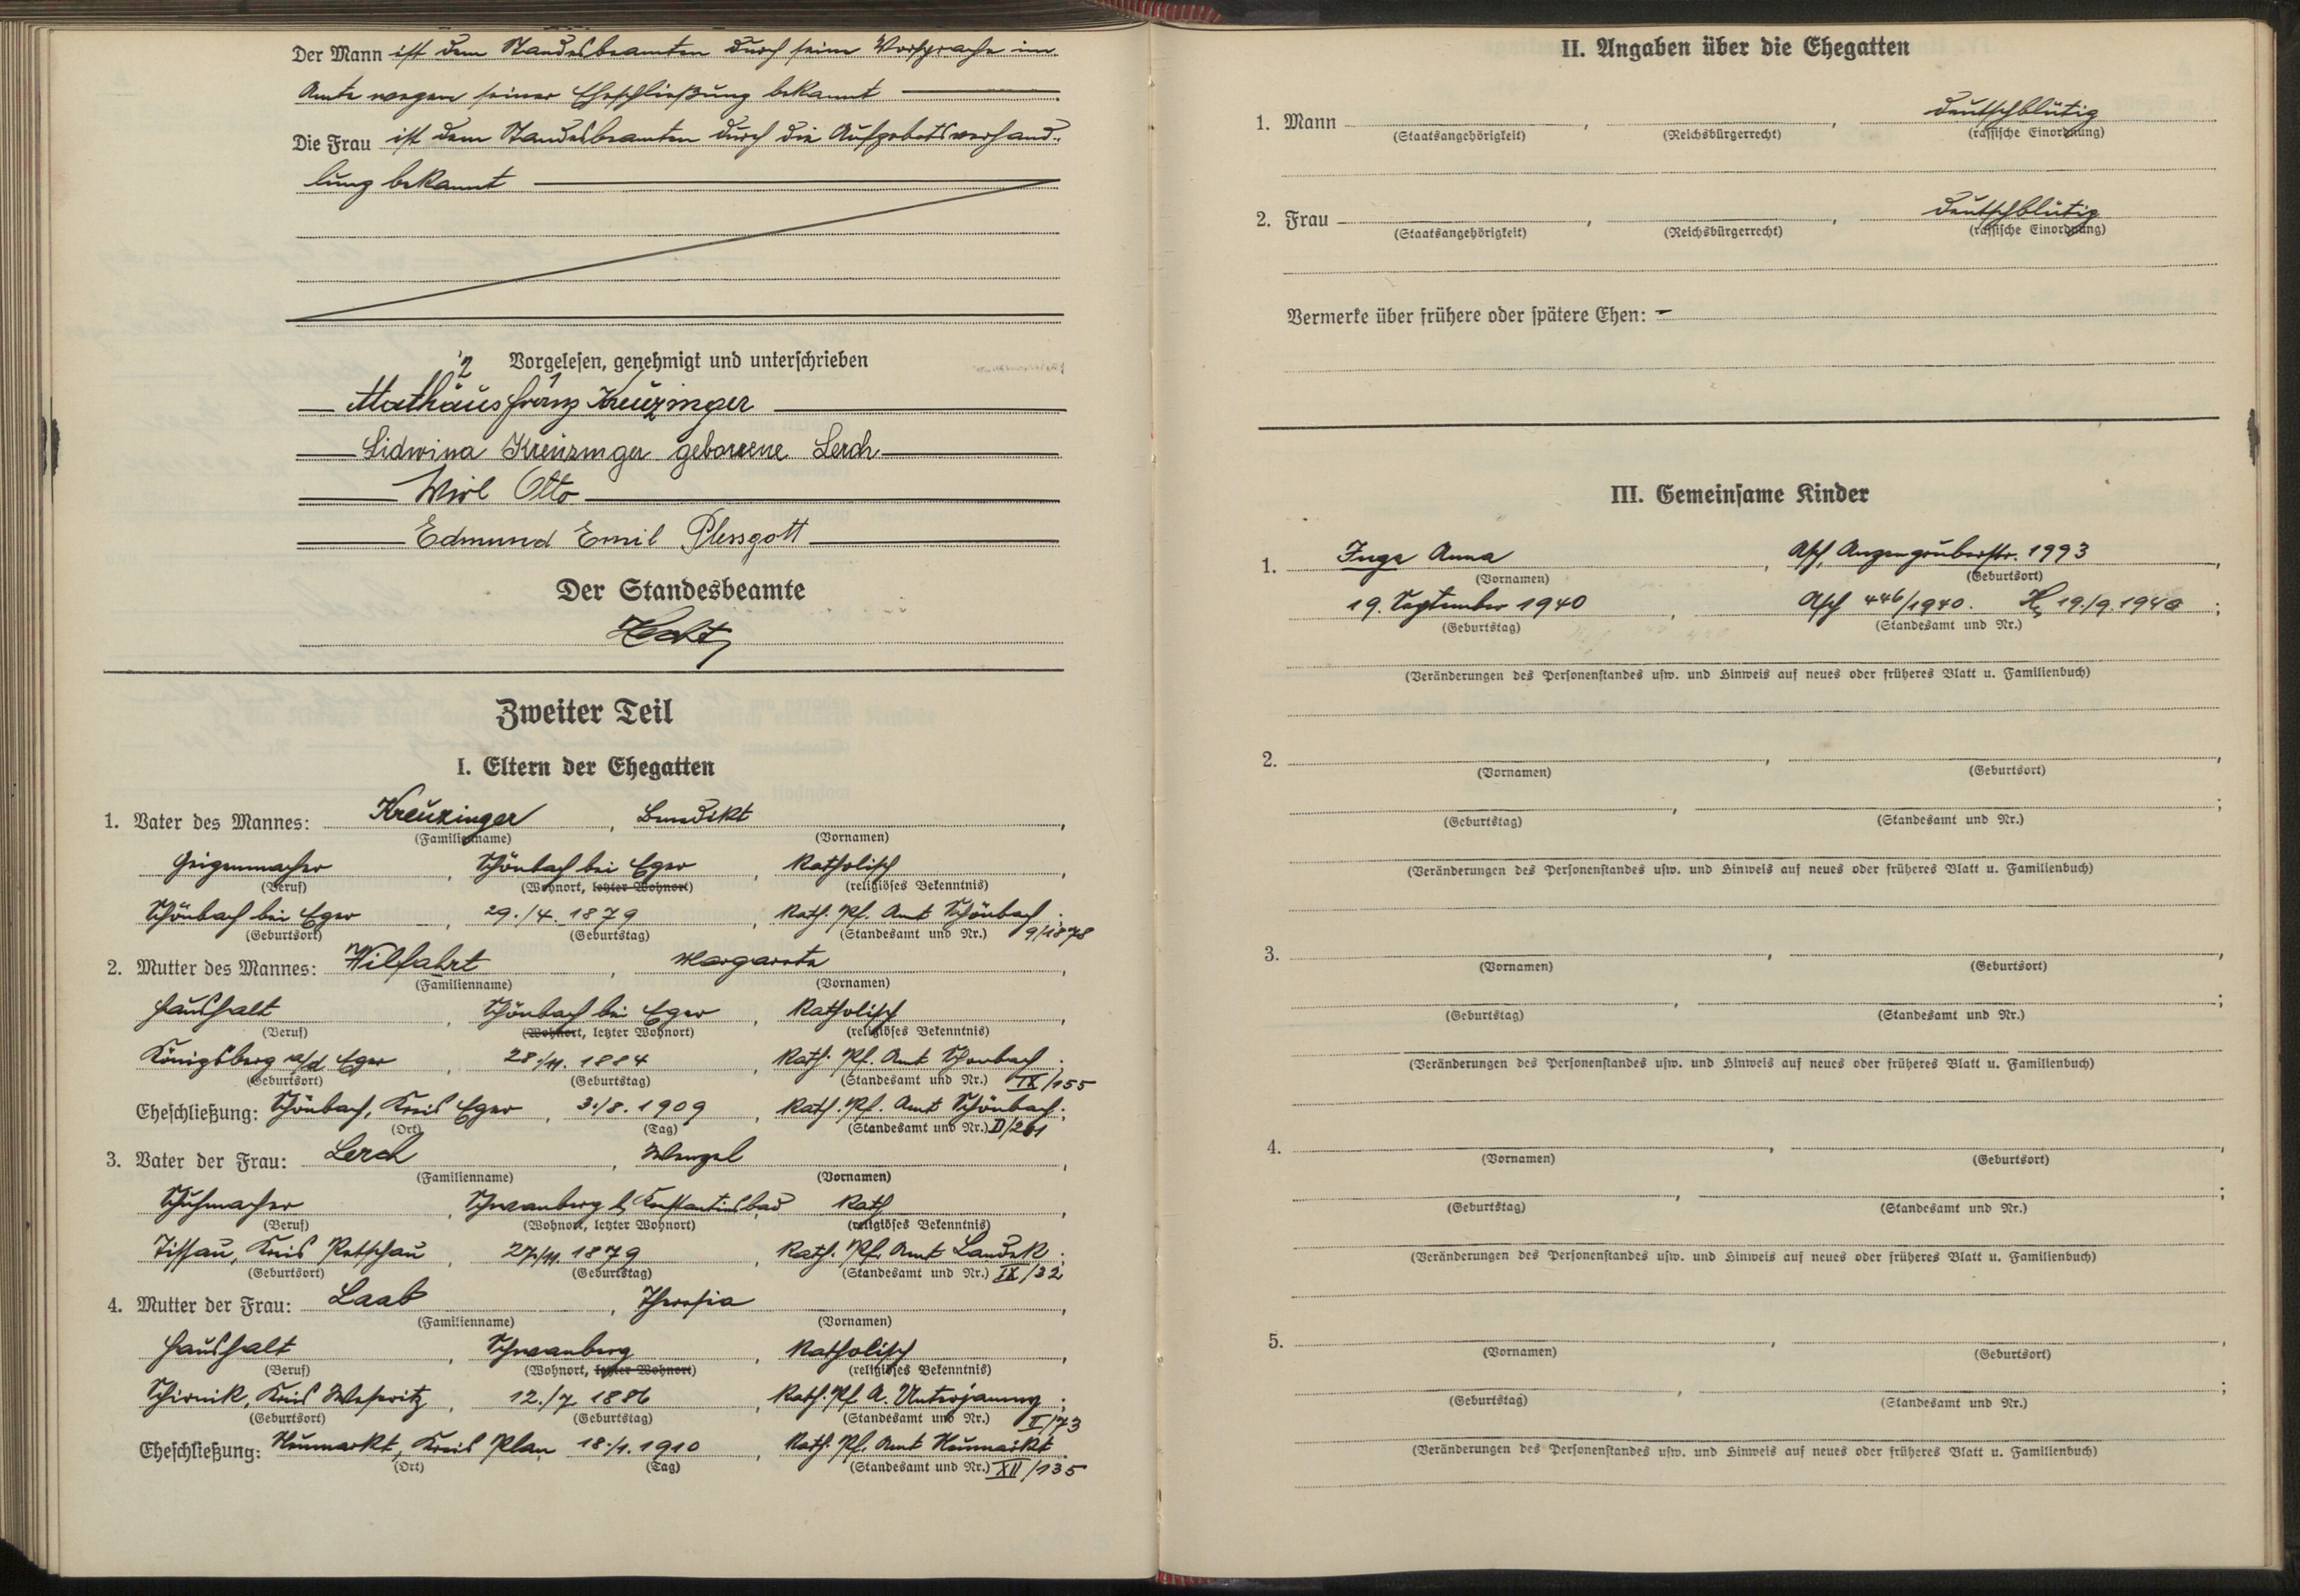 Der Mann ist dem Standesbeamten durch seine Vorsprache im
Amte wegen seiner Eheschließung bekannt
Die Frau ist dem Standesbeamten durch die Aufgebotsverhand-
lung bekannt
Vorgelesen, genehmigt und unterschrieben
Mathäus Franz Kreuzinger
Lidwina Kreuzinger geborene Lerch
Wirl Otto
Edmund Emil Plessgott
Der Standesbeamte
Zweiter Teil
I. Eltern der Ehegatten
1. Vater des Mannes: Kreuzinger, Benedikt,
(Familienname) (Vornamen)
Geigenmacher, Schönbach bei Eger, katholisch,
(Beruf) (Wohnort, letzter Wohnort) (religiöses Bekenntnis)
Schönbach bei Eger, 29./4. 1879, Kath. Pf. Amt Schönbach;
(Geburtsort) (Geburtstag) (Standesamt und Nr.) 9/1878
2. Mutter des Mannes: Wilfahrt, Margareta,
(Familienname) (Vornamen)
Haushalt, Schönbach bei Eger, katholisch,
(Beruf) (Wohnort, letzter Wohnort) (religiöses Bekenntnis)
Königsberg a/d. Eger, 28./11. 1884, Kath. Pf. Amt Schönbach;
(Geburtsort) (Geburtstag) (Standesamt und Nr.) IX/155
Eheschließung: Schönbach, Kreis Eger, 3./8. 1909, Kath. Pf. Amt Schönbach;
(Ort) (Tag) (Standesamt und Nr.) D/261
3. Vater der Frau: Lerch, Wenzel,
(Familienname) (Vornamen)
Schuhmacher, Schwanberg b. Konstantinsbad, kath,
(Beruf) (Wohnort, letzter Wohnort) (religiöses Bekenntnis)
Tissau, Kreis Petschau, 27./11. 1879, Kath. Pf. Amt Landek;
(Geburtsort) (Geburtstag) (Standesamt und Nr.) IX/32
4. Mutter der Frau: Laab, Theresia,
(Familienname) (Vornamen)
Haushalt, Schwanberg, katholisch,
(Beruf) (Wohnort, letzter Wohnort) (religiöses Bekenntnis)
Schirnik, Kreis Weseritz, 12./7. 1886, Kath. Pf. A. Unterjamny;
(Geburtsort) (Geburtstag) (Standesamt und Nr.) II/73
Eheschließung: Neumarkt, Kreis Plan, 18./1. 1910, Kath. Pf. Amt Neumarkt.
(Ort) (Tag) (Standesamt und Nr.) XII/135
II. Angaben über die Ehegatten
1. Mann, , deutschblütig
(Staatsangehörigkeit) (Reichsbürgerrecht) (rassische Einordnung)
2. Frau, , deutschblütig
(Staatsangehörigkeit) (Reichsbürgerrecht) (rassische Einordnung)
Vermerke über frühere oder spätere Ehen: -
III. Gemeinsame Kinder
1. Inge Anna, Asch, Anzengruberstr. 1993,
(Vornamen) (Geburtsort)
19. September 1940, Asch 446/1940. 19./9. 1940;
(Geburtstag) (Standesamt und Nr.)
(Veränderungen des Personenstandes usw. und Hinweis auf neues oder früheres Blatt u. Familienbuch)
2. , ,
(Vornamen) (Geburtsort)
, ;
(Geburtstag) (Standesamt und Nr.)
(Veränderungen des Personenstandes usw. und Hinweis auf neues oder früheres Blatt u. Familienbuch)
3. , ,
(Vornamen) (Geburtsort)
, ;
(Geburtstag) (Standesamt und Nr.)
(Veränderungen des Personenstandes usw. und Hinweis auf neues oder früheres Blatt u. Familienbuch)
4. , ,
(Vornamen) (Geburtsort)
, ;
(Geburtstag) (Standesamt und Nr.)
(Veränderungen des Personenstandes usw. und Hinweis auf neues oder früheres Blatt u. Familienbuch)
5. , ,
(Vornamen) (Geburtsort)
, ;
(Geburtstag) (Standesamt und Nr.)
(Veränderungen des Personenstandes usw. und Hinweis auf neues oder früheres Blatt u. Familienbuch)